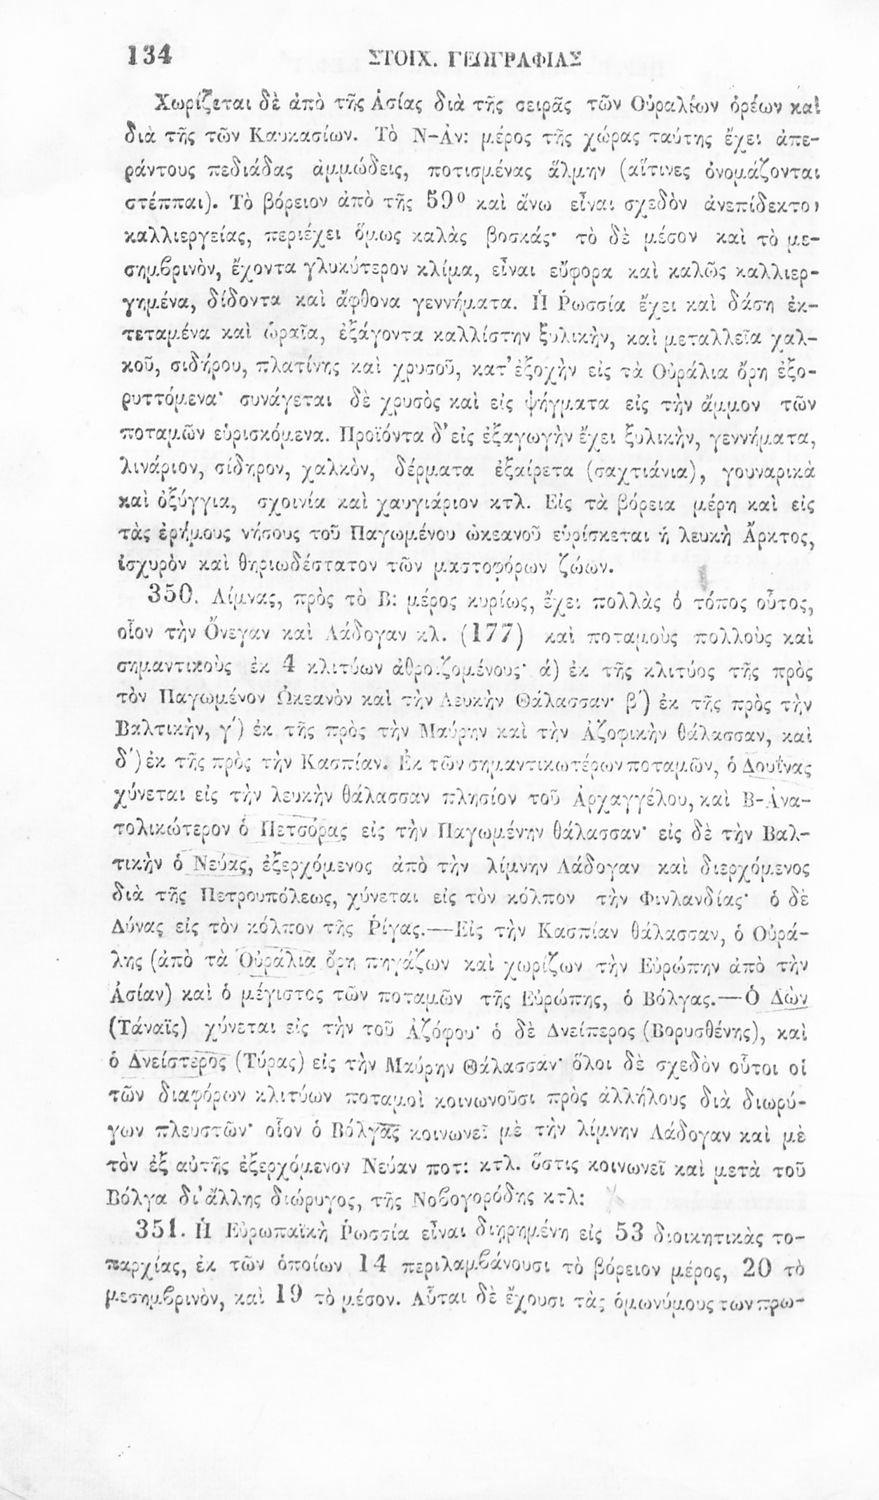 134 ΣΤΟΙΧ. ΓΕΩΓΡΑΦΙΑΣ
Χωρίζεται δὲ ἀπὸ τῆς Ἀσίας διὰ τῆς σειρᾶς τῶν Οὐραλίων ὀρέων καὶ
διὰ τῆς τῶν Καυκασίων. Τὸ Ν-Ἀν: μέρος τῆς χώρας ταύτης ἔχει ἀπε-
ράντους πεδιάδας ἀμμώδεις, ποτισμένας ἅλμην (αἵτινες ὀνομάζονται
στέππαι). Τὸ βόρειον ἀπὸ τῆς 59⁰ καὶ ἄνω εἶναι σχεδὸν ἀνεπίδεκτον
καλλιεργείας, περιέχει ὅμως καλὰς βοσκάς· τὸ δὲ μέσον καὶ τὸ με-
σημβρινὸν, ἔχοντα γλυκύτερον κλίμα, εἶναι εὔφορα καὶ καλῶς καλλιερ-
γημένα, δίδοντα καὶ ἄφθονα γεννήματα. Ἡ Ῥωσσία ἔχει καὶ δάση ἐκ-
τεταμένα καὶ ὡραῖα, ἐξάγοντα καλλίστην ξυλικὴν, καὶ μεταλλεῖα χαλ-
κοῦ, σιδήρου, πλατίνης καὶ χρυσοῦ, κατ' ἐξοχὴν εἰς τὰ Οὐράλια ὄρη ἐξο-
ρυττόμενα· συνάγεται δὲ χρυσὸς καὶ εἰς ψήγματα εἰς τὴν ἄμμον τῶν
ποταμῶν εὑρισκόμενα. Προϊόντα δ' εἰς ἐξαγωγὴν ἔχει ξυλικὴν, γεννήματα,
λινάριον, σίδηρον, χαλκὸν, δέρματα ἐξαίρετα (σαχτιάνια), γουναρικὰ
καὶ ὀξύγγια, σχοινία καὶ χαυγιάριον κτλ. Εἰς τὰ βόρεια μέρη καὶ εἰς
τὰς ἐρήμους νήσους τοῦ Παγωμένου ὠκεανοῦ εὑρίσκεται ἡ λευκὴ Ἄρκτος,
ἰσχυρὸν καὶ θηριωδέστατον τῶν μαστοφόρων ζώων.
350. Λίμνας, πρὸς τὸ Β: μέρος κυρίως, ἔχει πολλὰς ὁ τόπος οὗτος,
οἷον τὴν Ὄνεγαν καὶ Λάδογαν κλ. (177) καὶ ποταμοὺς πολλοὺς καὶ
σημαντικοὺς ἐκ 4 κλιτύων ἀθροιζομένους· ά) ἐκ τῆς κλιτύος τῆς πρὸς
τὸν Παγωμένον Ὠκεανὸν καὶ τὴν Λευκὴν Θάλασσαν· β΄) ἐκ τῆς πρὸς τὴν
Βαλτικὴν, γ΄) ἐκ τῆς πρὸς τὴν Μαύρην καὶ τὴν Ἀζοφικὴν θάλασσαν, καὶ
δ΄) ἐκ τῆς πρὸς τὴν Κασπίαν. Ἐκ τῶν σημαντικωτέρων ποταμῶν, ὁ Δουΐνας
χύνεται εἰς τὴν λευκὴν θάλασσαν πλησίον τοῦ Ἀρχαγγέλου, καὶ Β-Ἀνα-
τολικώτερον ὁ Πετσόρας εἰς τὴν Παγωμένην θάλασσαν· εἰς δὲ τὴν Βαλ-
τικὴν ὁ Νεύας, ἐξερχόμενος ἀπὸ τὴν λίμνην Λάδογαν καὶ διερχόμενος
διὰ τῆς Πετρουπόλεως, χύνεται εἰς τὸν κόλπον τὴν Φινλανδίας· ὁ δὲ
Δύνας εἰς τὸν κόλπον τῆς Ῥίγας.—Εἰς τὴν Κασπίαν θάλασσαν, ὁ Οὐρά-
λης (ἀπὸ τὰ Οὐράλια ὄρη πηγάζων καὶ χωρίζων τὴν Εὐρώπην ἀπὸ τὴν
Ἀσίαν) καὶ ὁ μέγιστος τῶν ποταμῶν τῆς Εὐρώπης, ὁ Βόλγας.—Ὁ Δὼν
(Τάναϊς) χύνεται εἰς τὴν τοῦ Ἀζόφου· ὁ δὲ Δνείπερος (Βορυσθένης), καὶ
ὁ Δνείστερος (Τύρας) εἰς τὴν Μαύρην Θάλασσαν· ὅλοι δὲ σχεδὸν οὗτοι οἱ
τῶν διαφόρων κλιτύων ποταμοὶ κοινωνοῦσι πρὸς ἀλλήλους διὰ διωρύ-
γων πλευστῶν· οἷον ὁ Βόλγας κοινωνεῖ μὲ τὴν λίμνην Λάδογαν καὶ μὲ
τὸν ἐξ αὐτῆς ἐξερχόμενον Νεύαν ποτ: κτλ. ὅστις κοινωνεῖ καὶ μετὰ τοῦ
Βόλγα δι' ἄλλης διώρυγος, τῆς Νοβογορόδης κτλ:
351. Ἡ Εὐρωπαϊκὴ Ῥωσσία εἶναι διῃρημένη εἰς 53 διοικητικὰς το-
παρχίας, ἐκ τῶν ὁποίων 14 περιλαμβάνουσι τὸ βόρειον μέρος, 20 τὸ
μεσημβρινὸν, καὶ 19 τὸ μέσον. Αὗται δὲ ἔχουσι τὰς ὁμωνύμους των πρω-